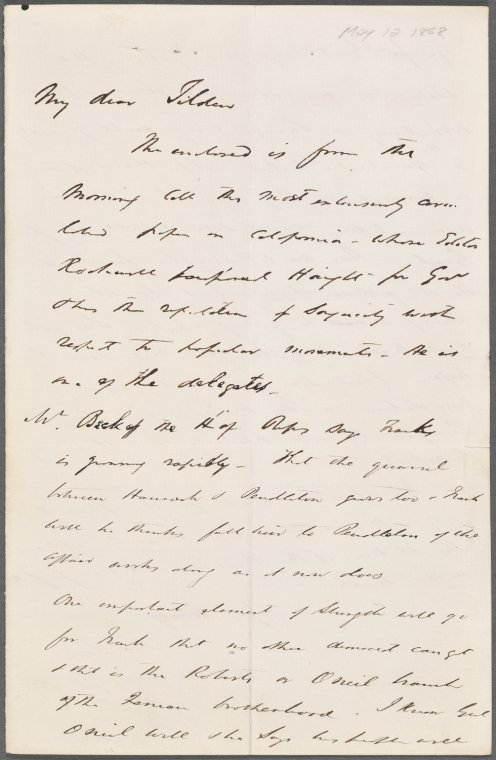 May 12 1868
My dear Tilden
The enclosed is from the
Morning Call the most extensively circu
lated paper in California - whose Editor
Rockwell proposed Haight for Govr
& has the reputation of sagacity with
respect to popular movements - He is
one of the delegates -
Mr. Beck of the H of Reps says Frank
is growing rapidly - That the quarrel
between Hancock & Pendleton grows too - Frank
will he thinks fall heir to Pendleton if the
affair works along as it now does
One important element of strength will go
for Frank that no other democrat can get
& that is the Roberts or O'Neil branch
of the Fenian brotherhood. I know Genl
O'Neil well & he says his people will